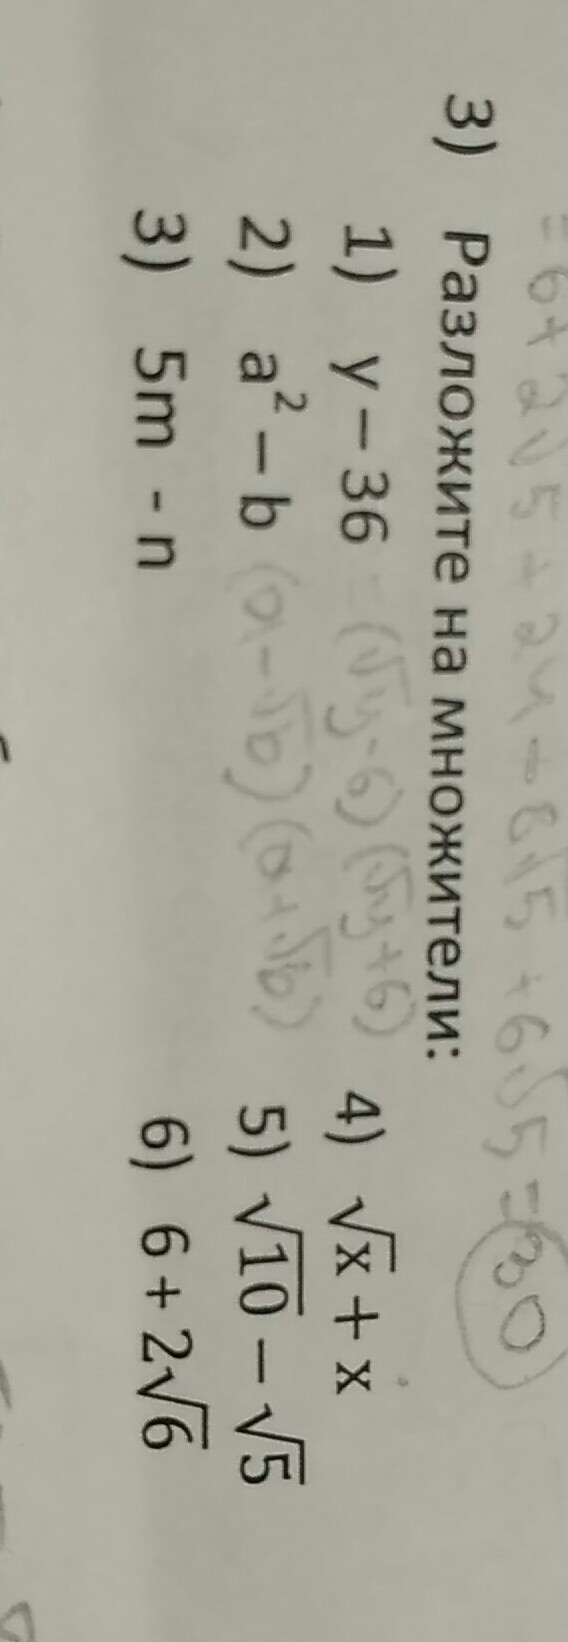 = 6 + 2√5 + 24 - 8√5 + 6√5 = 30
3) Разложите на множители:
1) y – 36 = (√y - 6) (√y + 6)
2) a² – b (a - √b) (a + √b)
3) 5m - n
4) √x + x
5) √10 – √5
6) 6 + 2√6